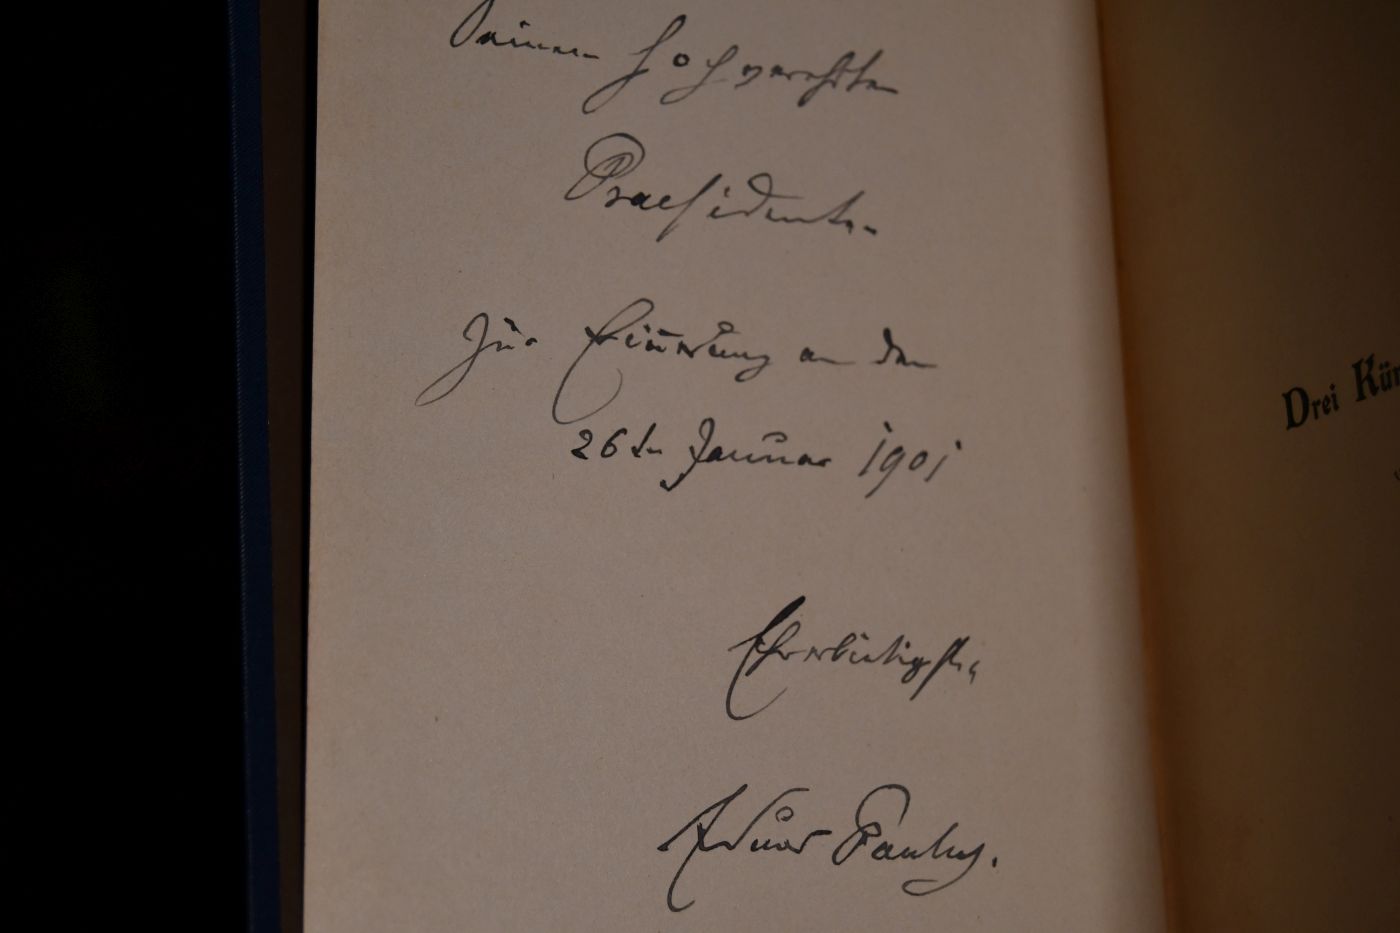 Seinem hochverehrten
Praesidenten
zur Erinnerung an den
26ten Januar 1901
Ehrerbietigst
Eduard
Drei